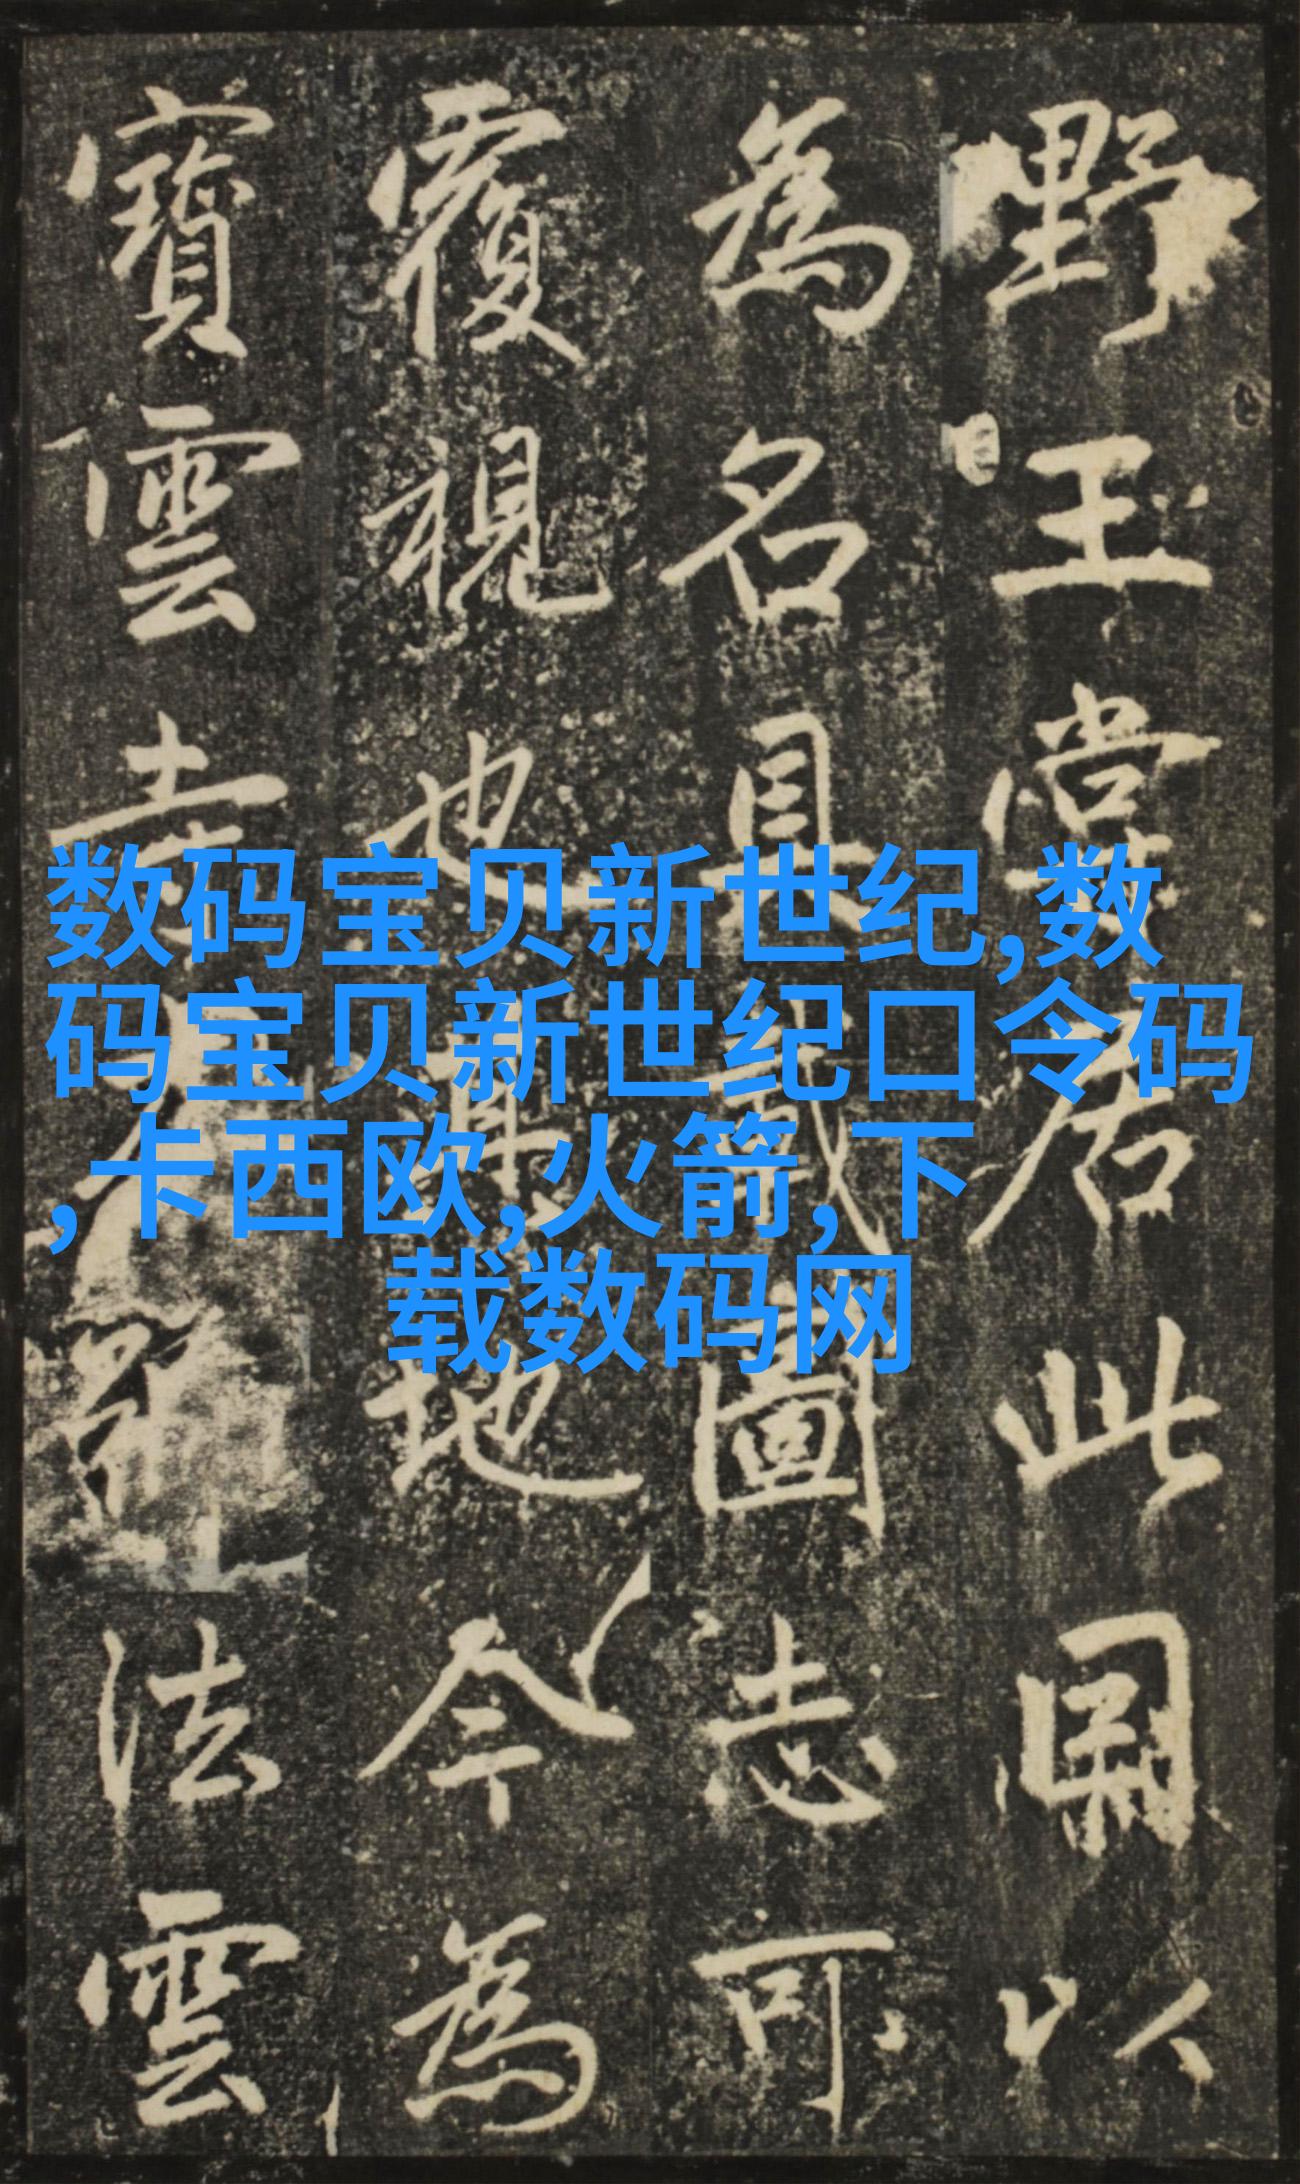 数码宝贝新世纪,数
码宝贝新世纪口令码
,卡西欧,火箭,下
载数码网
野王嘗居此以
為名具載圖志可
覆視也其地今為
寶雲寺法雲